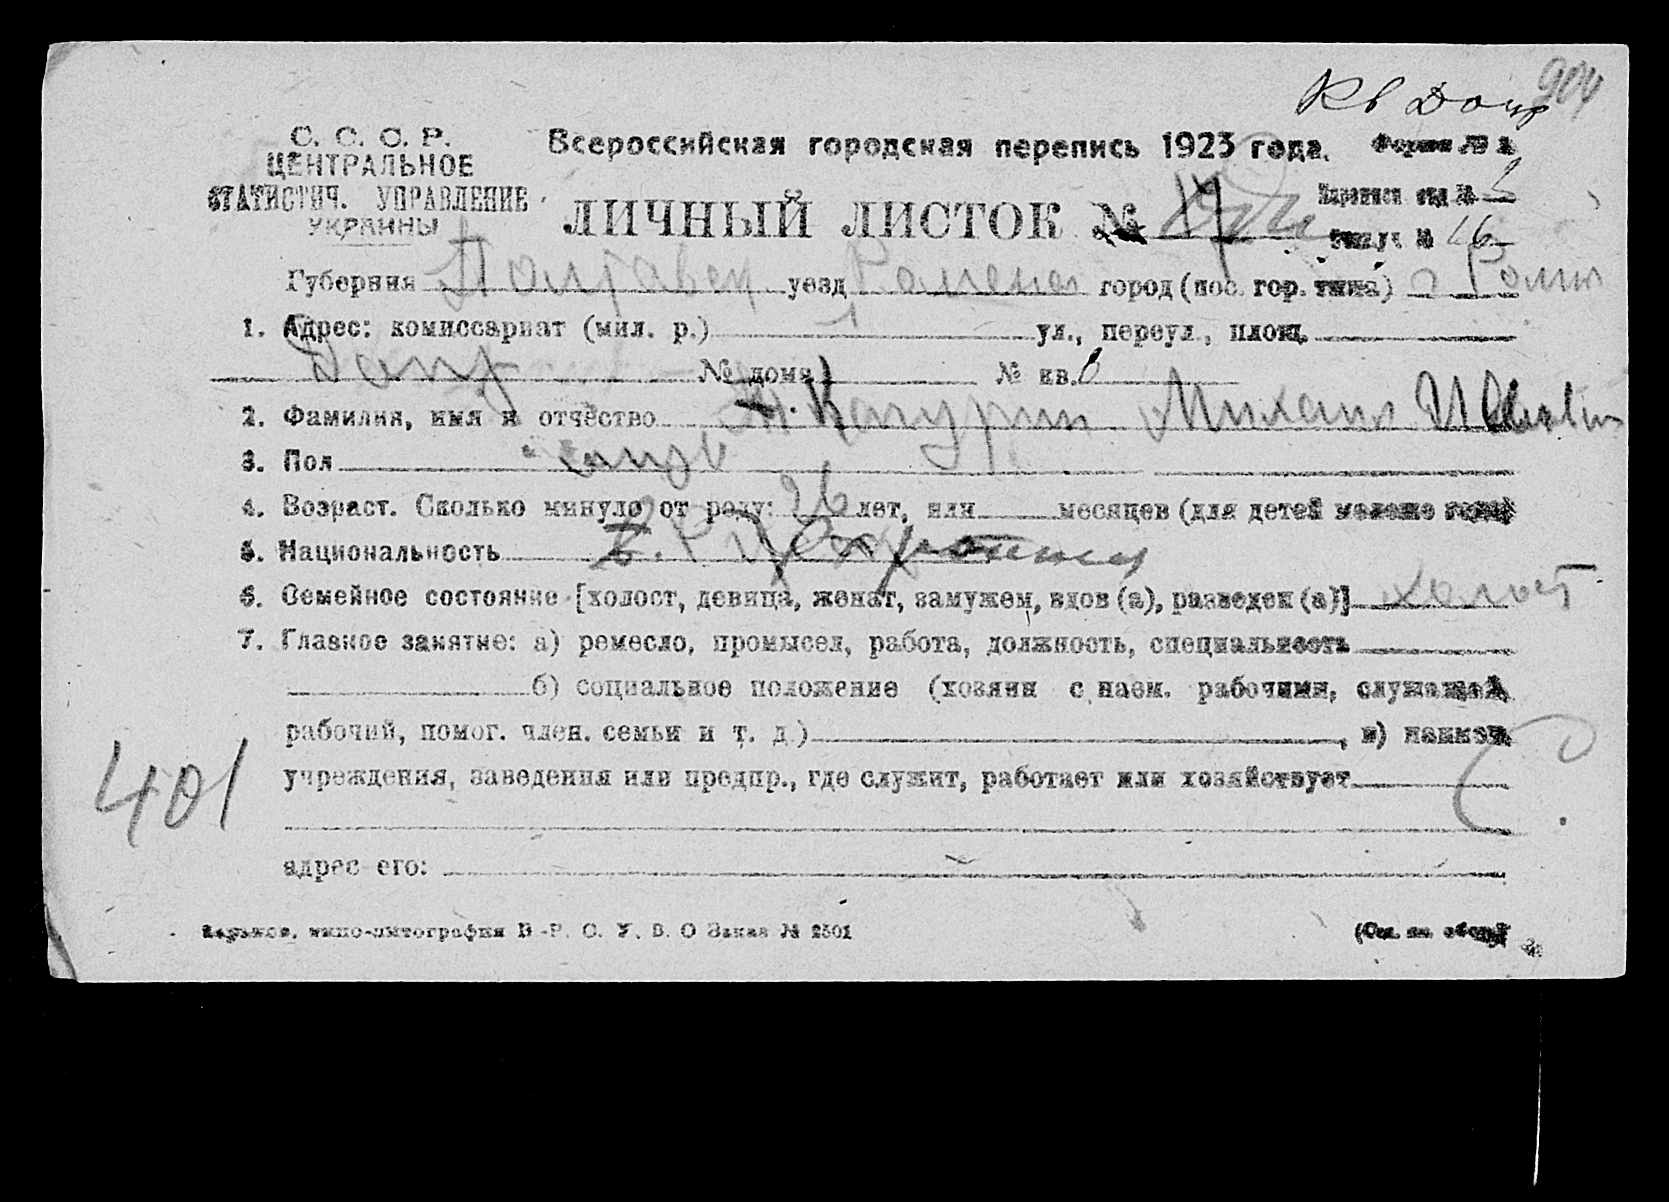 904
С. С. С. Р.
ЦЕНТРАЛЬНОЕ
СТАТИСТИЧ. УПРАВЛЕНИЕ
УКРАИНЫ
Всероссийская городская перепись 1923 года. Форма № 1
ЛИЧНЫЙ ЛИСТОК № 17
№ 16
Губерния Полтавск уезд Роменск город (пос. гор. типа) г Ромны
1. Адрес: комиссариат (мил. р.) ул., переул., площ.
Допр № дома № кв.
2. Фамилия, имя и отчество Михаил
3. Пол
4. Возраст. Сколько минуло от роду: 26 лет, или месяцев (для детей моложе года)
5. Национальность
6. Семейное состояние [холост, девица, женат, замужем, вдов (а), разведен (а)] холост
7. Главное занятие: а) ремесло, промысел, работа, должность, специальность
б) социальное положение (хозяин с наем. рабочими, служащий,
рабочий, помог. член. семьи и т. д.) , в) наимен.
учреждения, заведения или предпр., где служит, работает или хозяйствует
адрес его:
401
Харьков, типо-литография В.-Р. С. У. В. О Заказ № 2501
(См. на обор.)